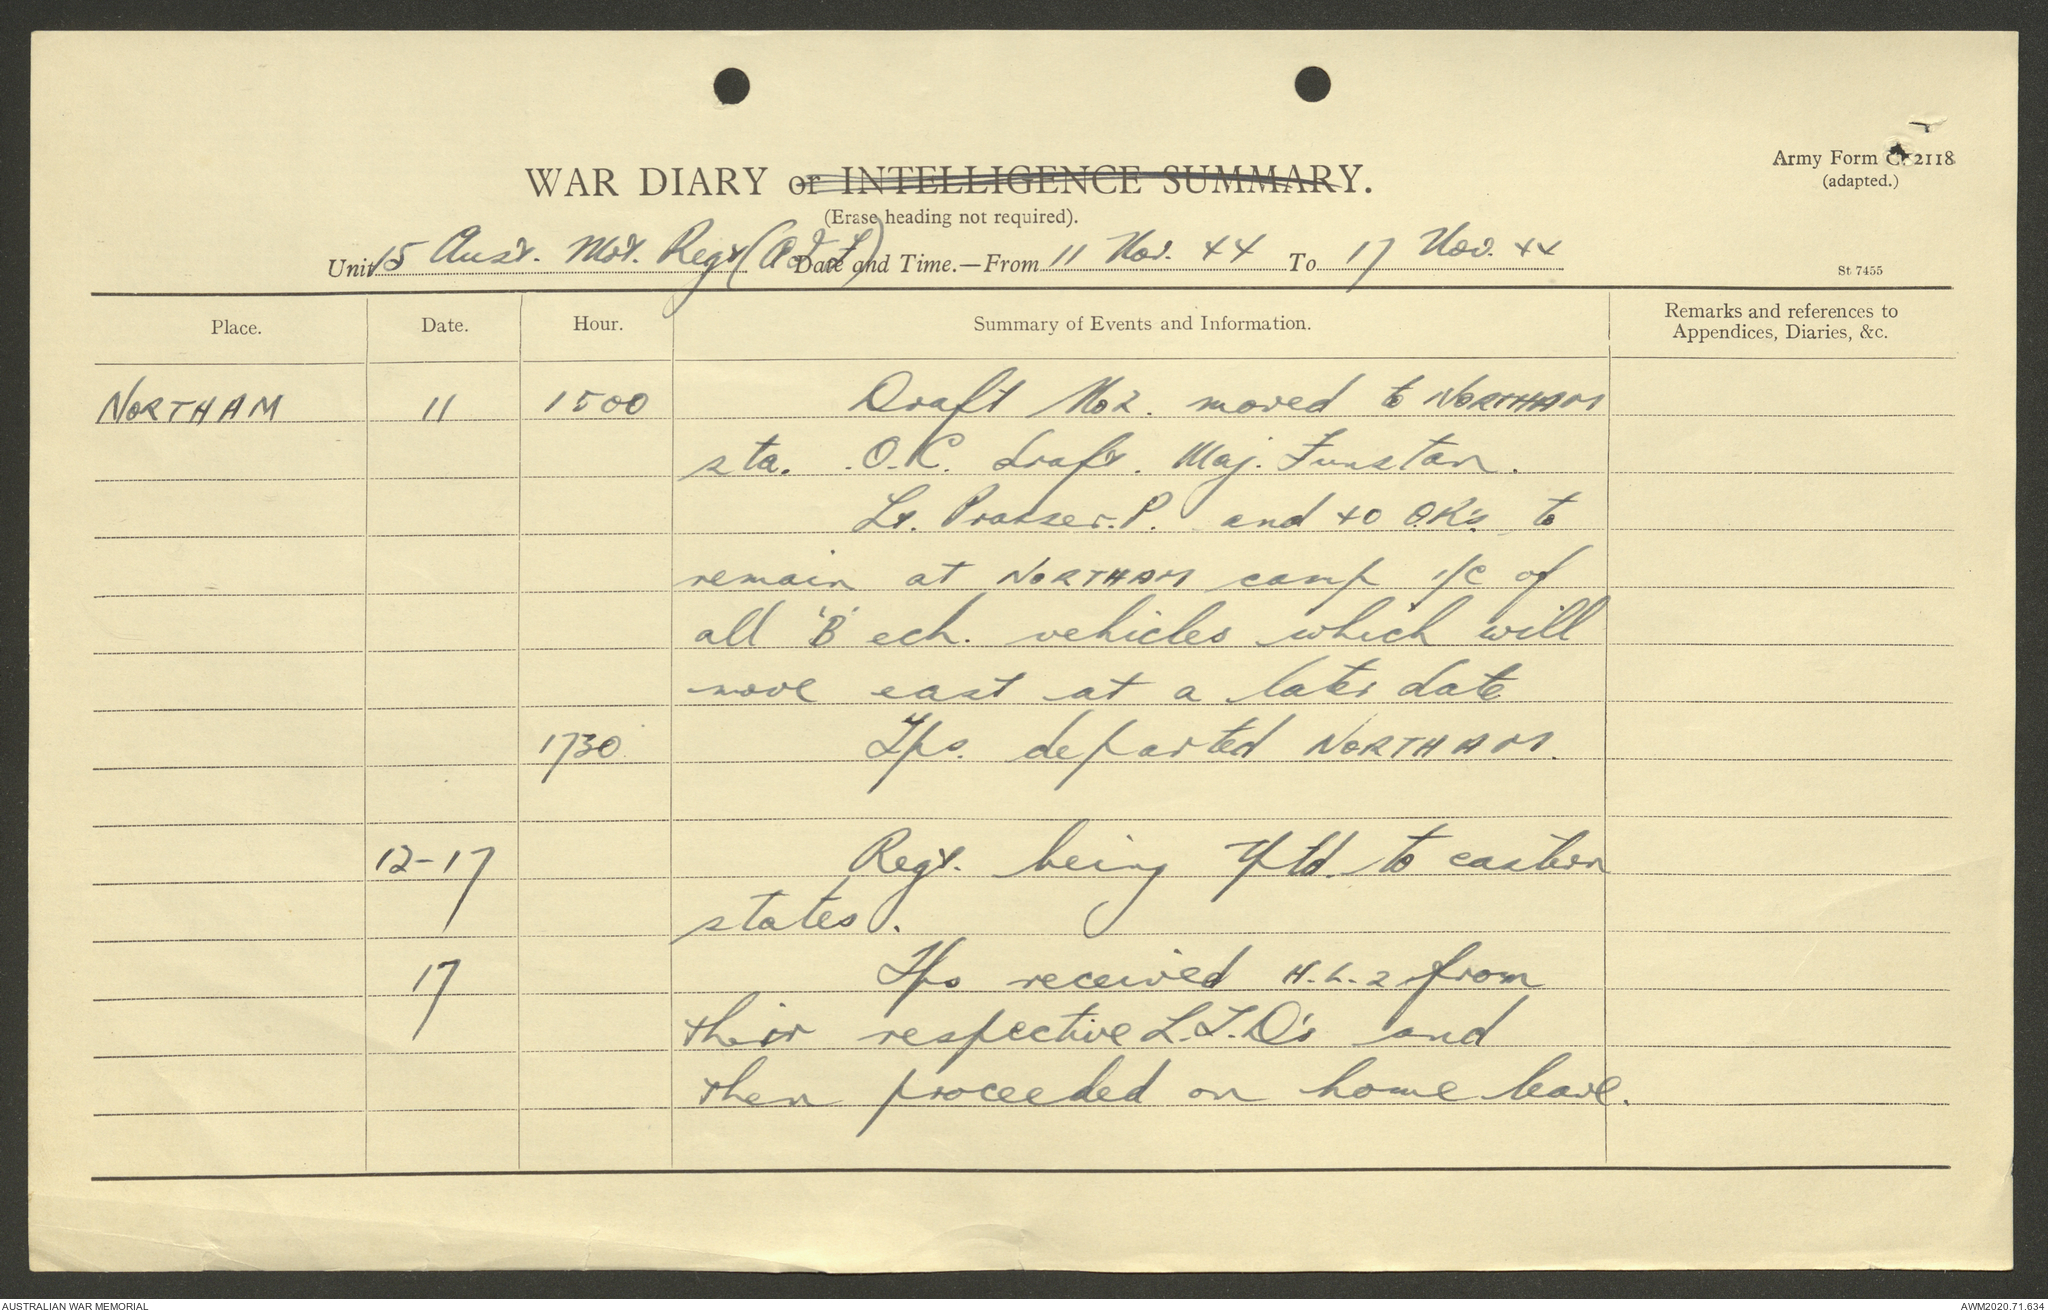 Army Form C. 2118
(adapted.)
WAR DIARY or INTELLIGENCE SUMMARY.
(Erase heading not required).
Unit 15 Aust. Mot. Regt (A.I.F) Date and Time.—From 11 Nov. 44 To 17 Nov. 44
St 7455
Place. Date. Hour. Summary of Events and Information. Remarks and references to
Appendices, Diaries, &c.
NORTHAM 11 1500 Draft No 2. moved to NORTHAM
sta. O.C. draft. Maj. Funstan.
Lt. P. and 40 O.R's. to
remain at NORTHAM camp i/c of
all 'B' ech. vehicles which will
move east at a later date
1730 Tps. departed NORTHAM.
12-17 Regt. being tptd. to eastern
states.
17 Tps received H.L.2 from
their respective L.T.D's and
then proceeded on home leave.
AUSTRALIAN WAR MEMORIAL AWM2020.71.634